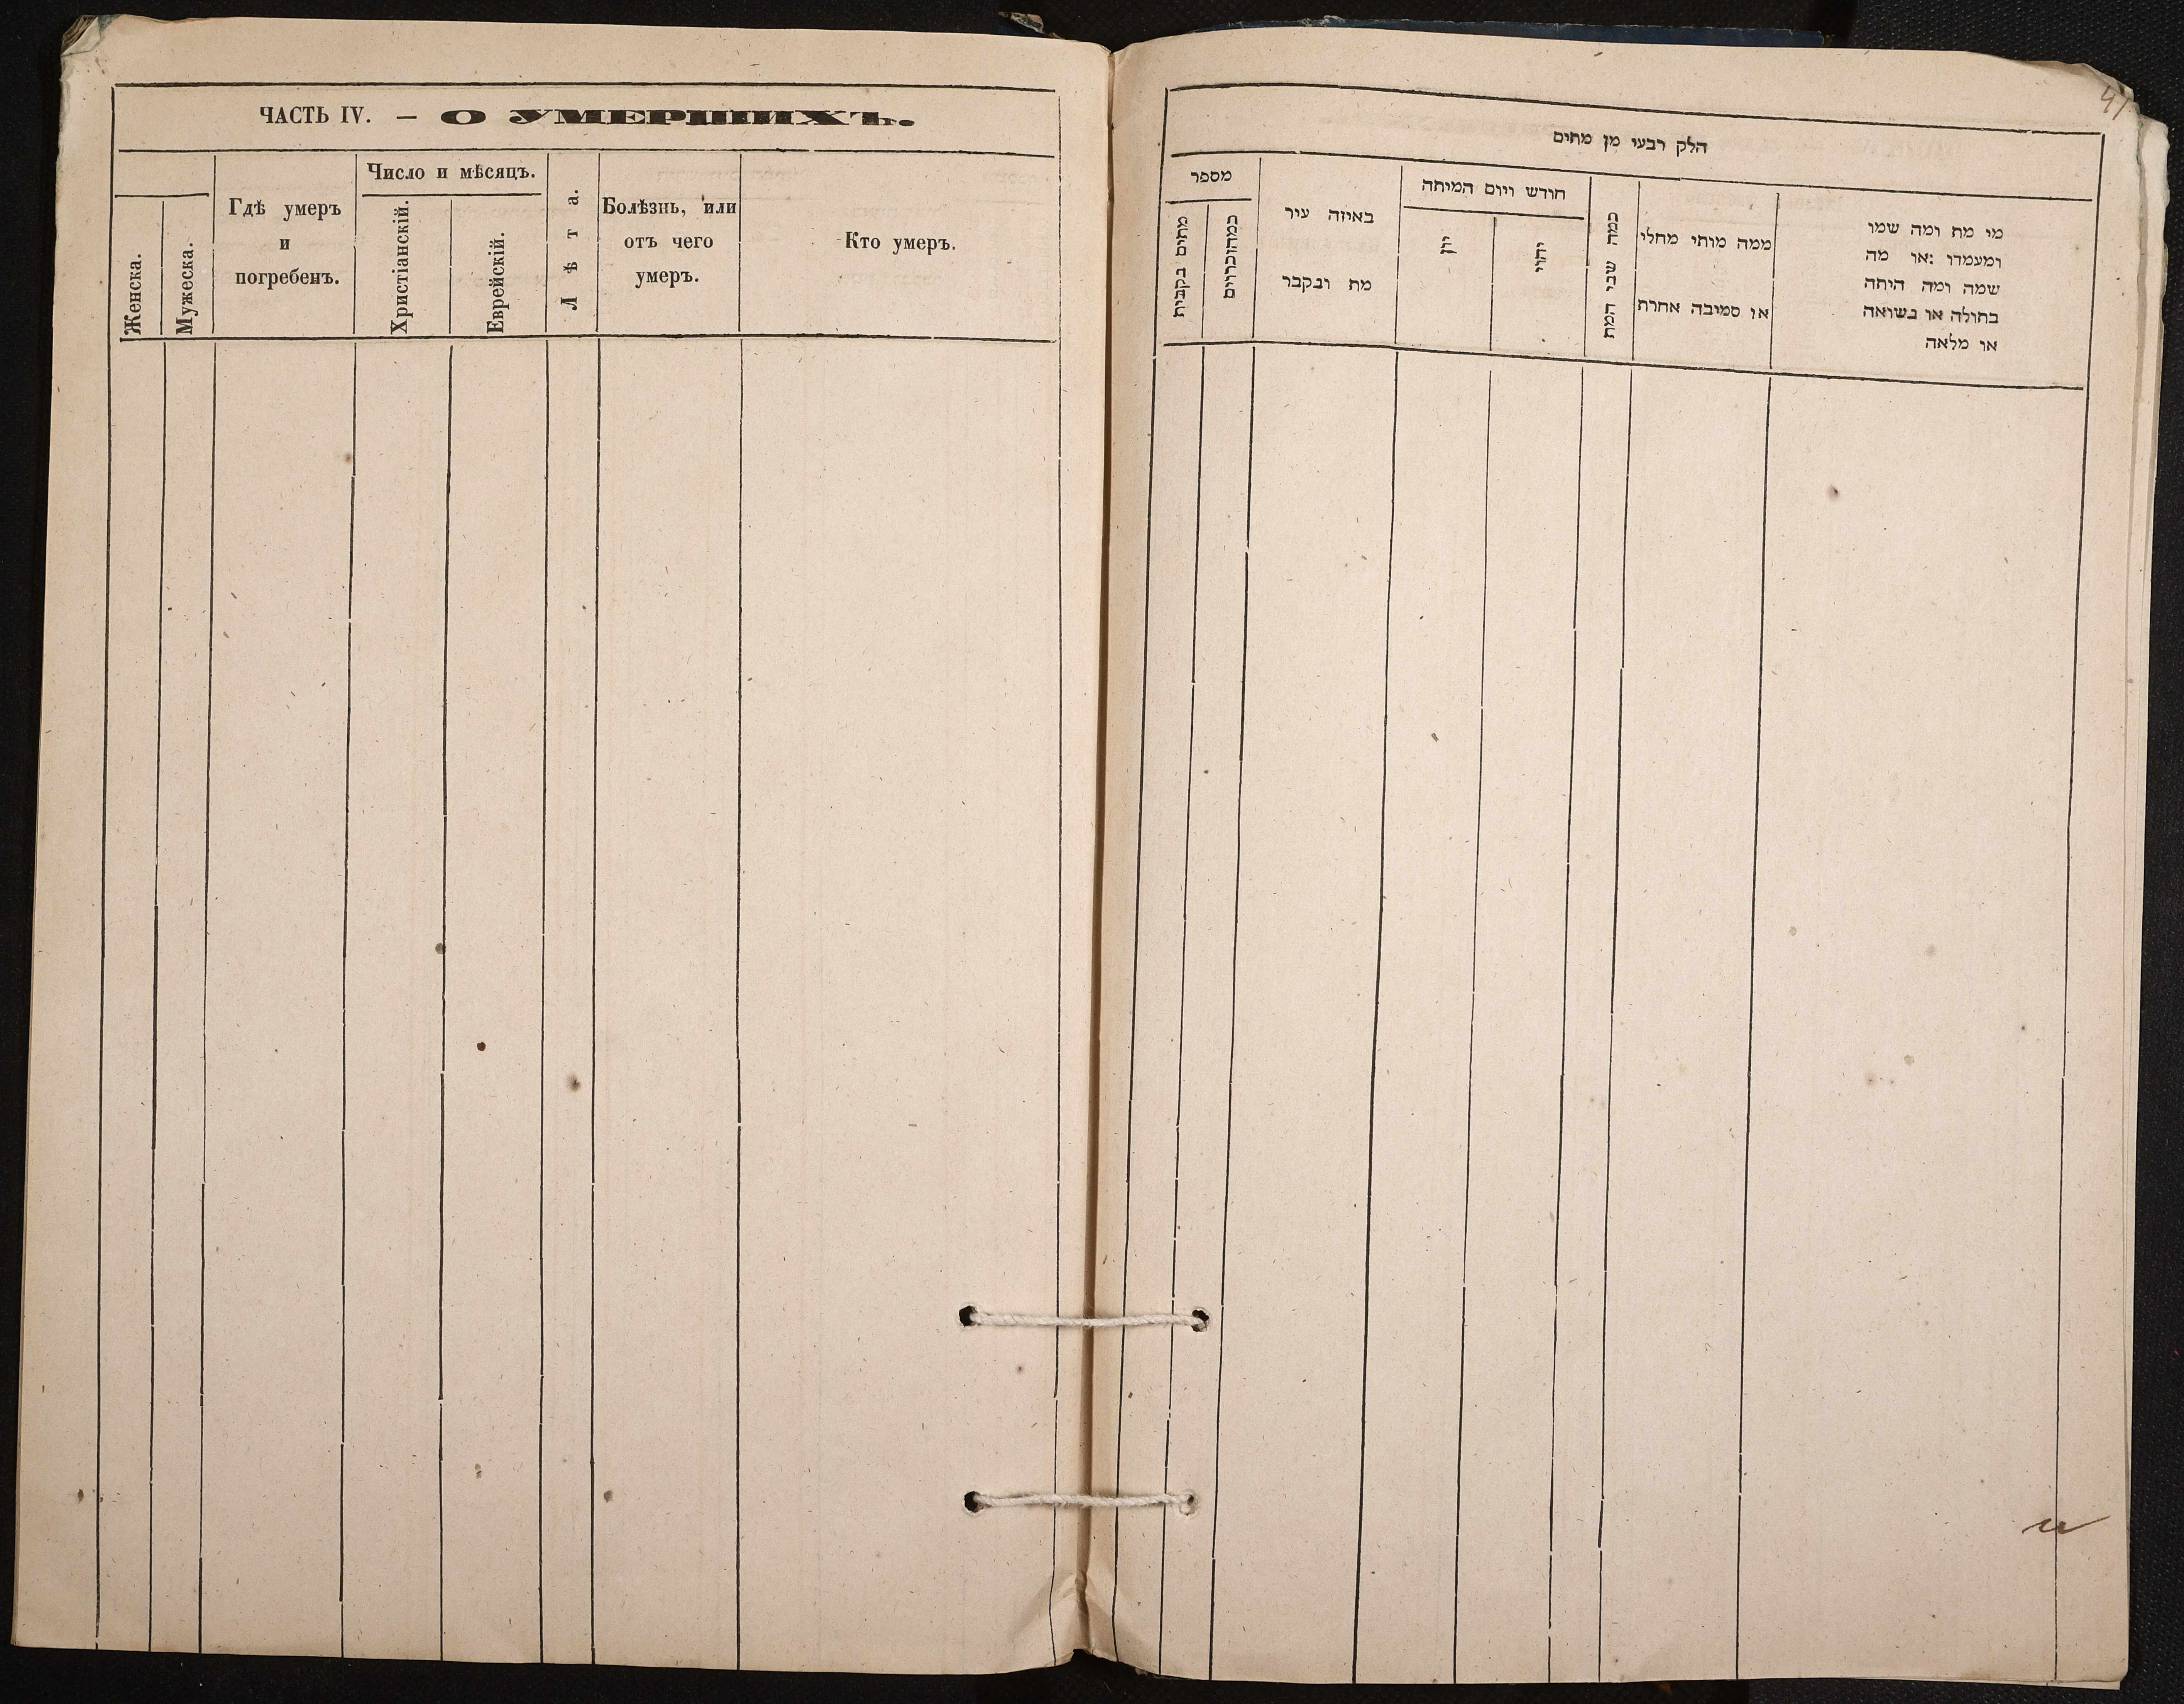 ЧАСТЬ IV. — О УМЕРШИХЪ.
Женска.
Мужеска.
Гдѣ умеръ
и
погребенъ.
Число и мѣсяцъ.
Христіанскій.
Еврейскій.
Лѣта.
Болѣзнь, или
отъ чего
умеръ.
Кто умеръ.
41
הלק רבעי מן מתים
מספר
מתים בקבית
כמהוכרוים
באיזה עיר
מת ונקבר
חודש ויום המיתה
יון
יהוי
כמה שני המת
ממה מותי מחלי
או סמיבה אחרת
מי מת ומה שמו
ומעמדו :או מה
שמה ומה היתה
בתולה או נשואה
או מלאה